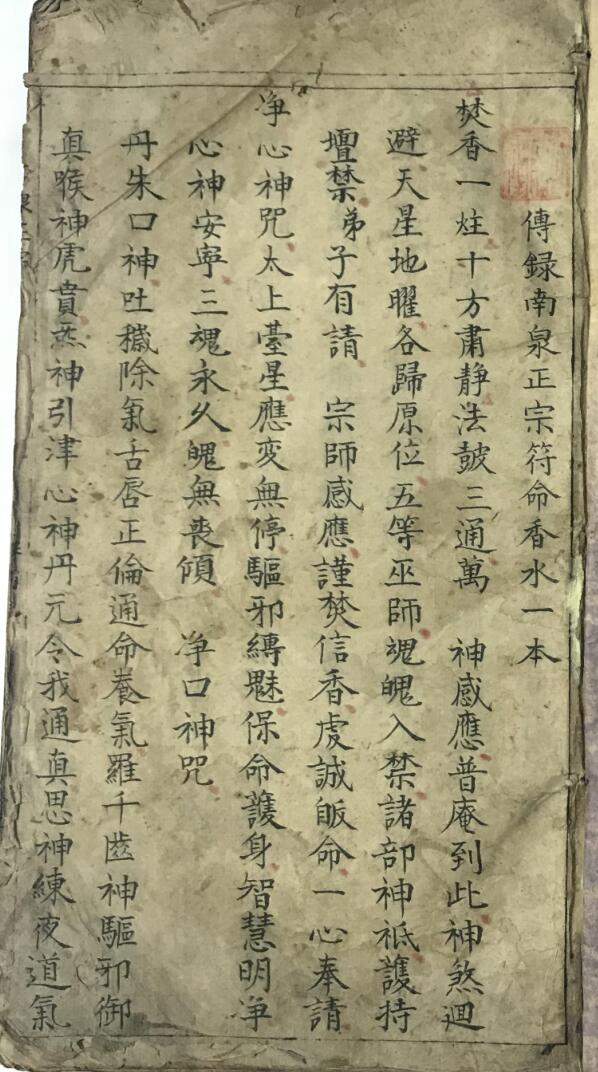 傳録南泉正宗符命香水一本
焚香一炷十方肅静法皷三通萬 神感應普庵到此神煞迴
避天星地曜各歸原位五等巫師魂魄入禁諸部神祗護持
壇禁弟子有請 宗師感應謹焚信香虔誠皈命一心奉請
净心神咒太上臺星應变無停驅邪縳魅保命護身智慧明净
心神安寜三魂永久魄無丧傾 净口神咒
丹朱口神吐穢除氣舌唇正倫通命養氣羅千齒神驅邪御
真喉神虎賁炁神引津心神丹元令我通真思神練夜道氣